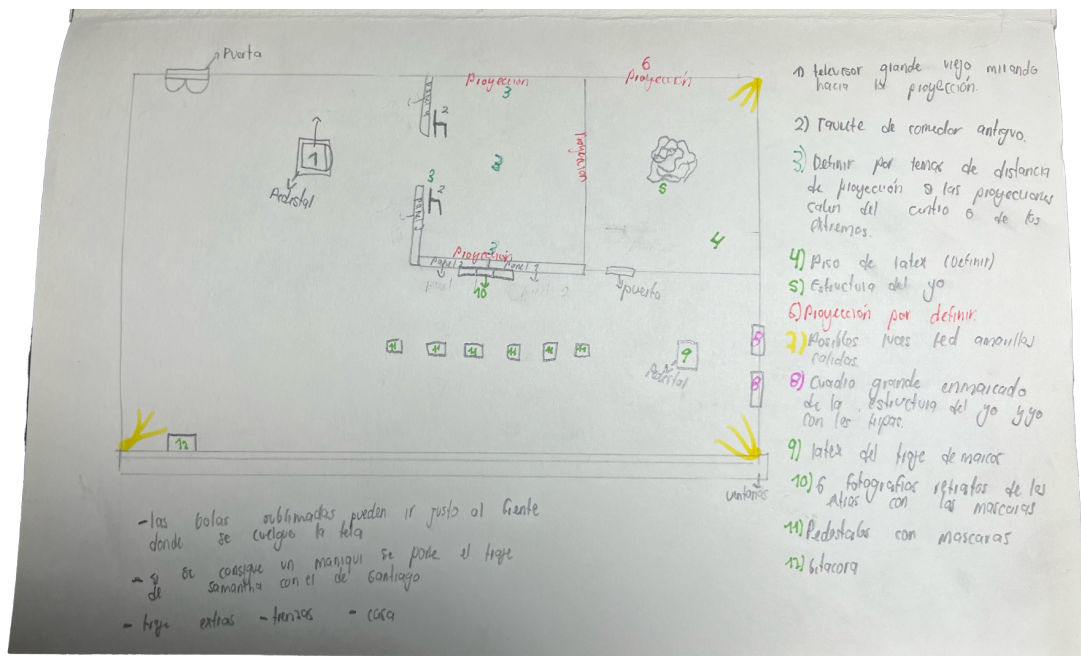 Puerta
Proyeccion
3
6
Proyección
1
Pedestal
2
3
2
3
Proyeccion
5
4
Proyección
2
Panel 2
Panel 1
10
puerta
11
11
11
11
11
11
9
Pedestal
8
8
12
ventanas
1) televisor grande viejo mirando
hacia la proyección.
2) de comedor antiguo.
3) Definir por temas de distancia
de proyección si las proyecciones
salen del centro o de los
extremos.
4) Piso de latex (Definir)
5) Estructura del yo
6) Proyección por definir.
7) Posibles luces led amarillas
calidas.
8) Cuadro grande enmarcado
de la estructura del yo y yo
con las tripas.
9) latex del traje de marcos
10) 6 fotografias retratos de las
extras con las mascaras
11) Pedestales con mascaras
12) bitacora
-las bolas sublimadas pueden ir justo al frente
donde se cuelgue la tela
- si se consigue un maniqui se pone el traje
de samantha con el de santiago
- traje extras - trenzas - casa